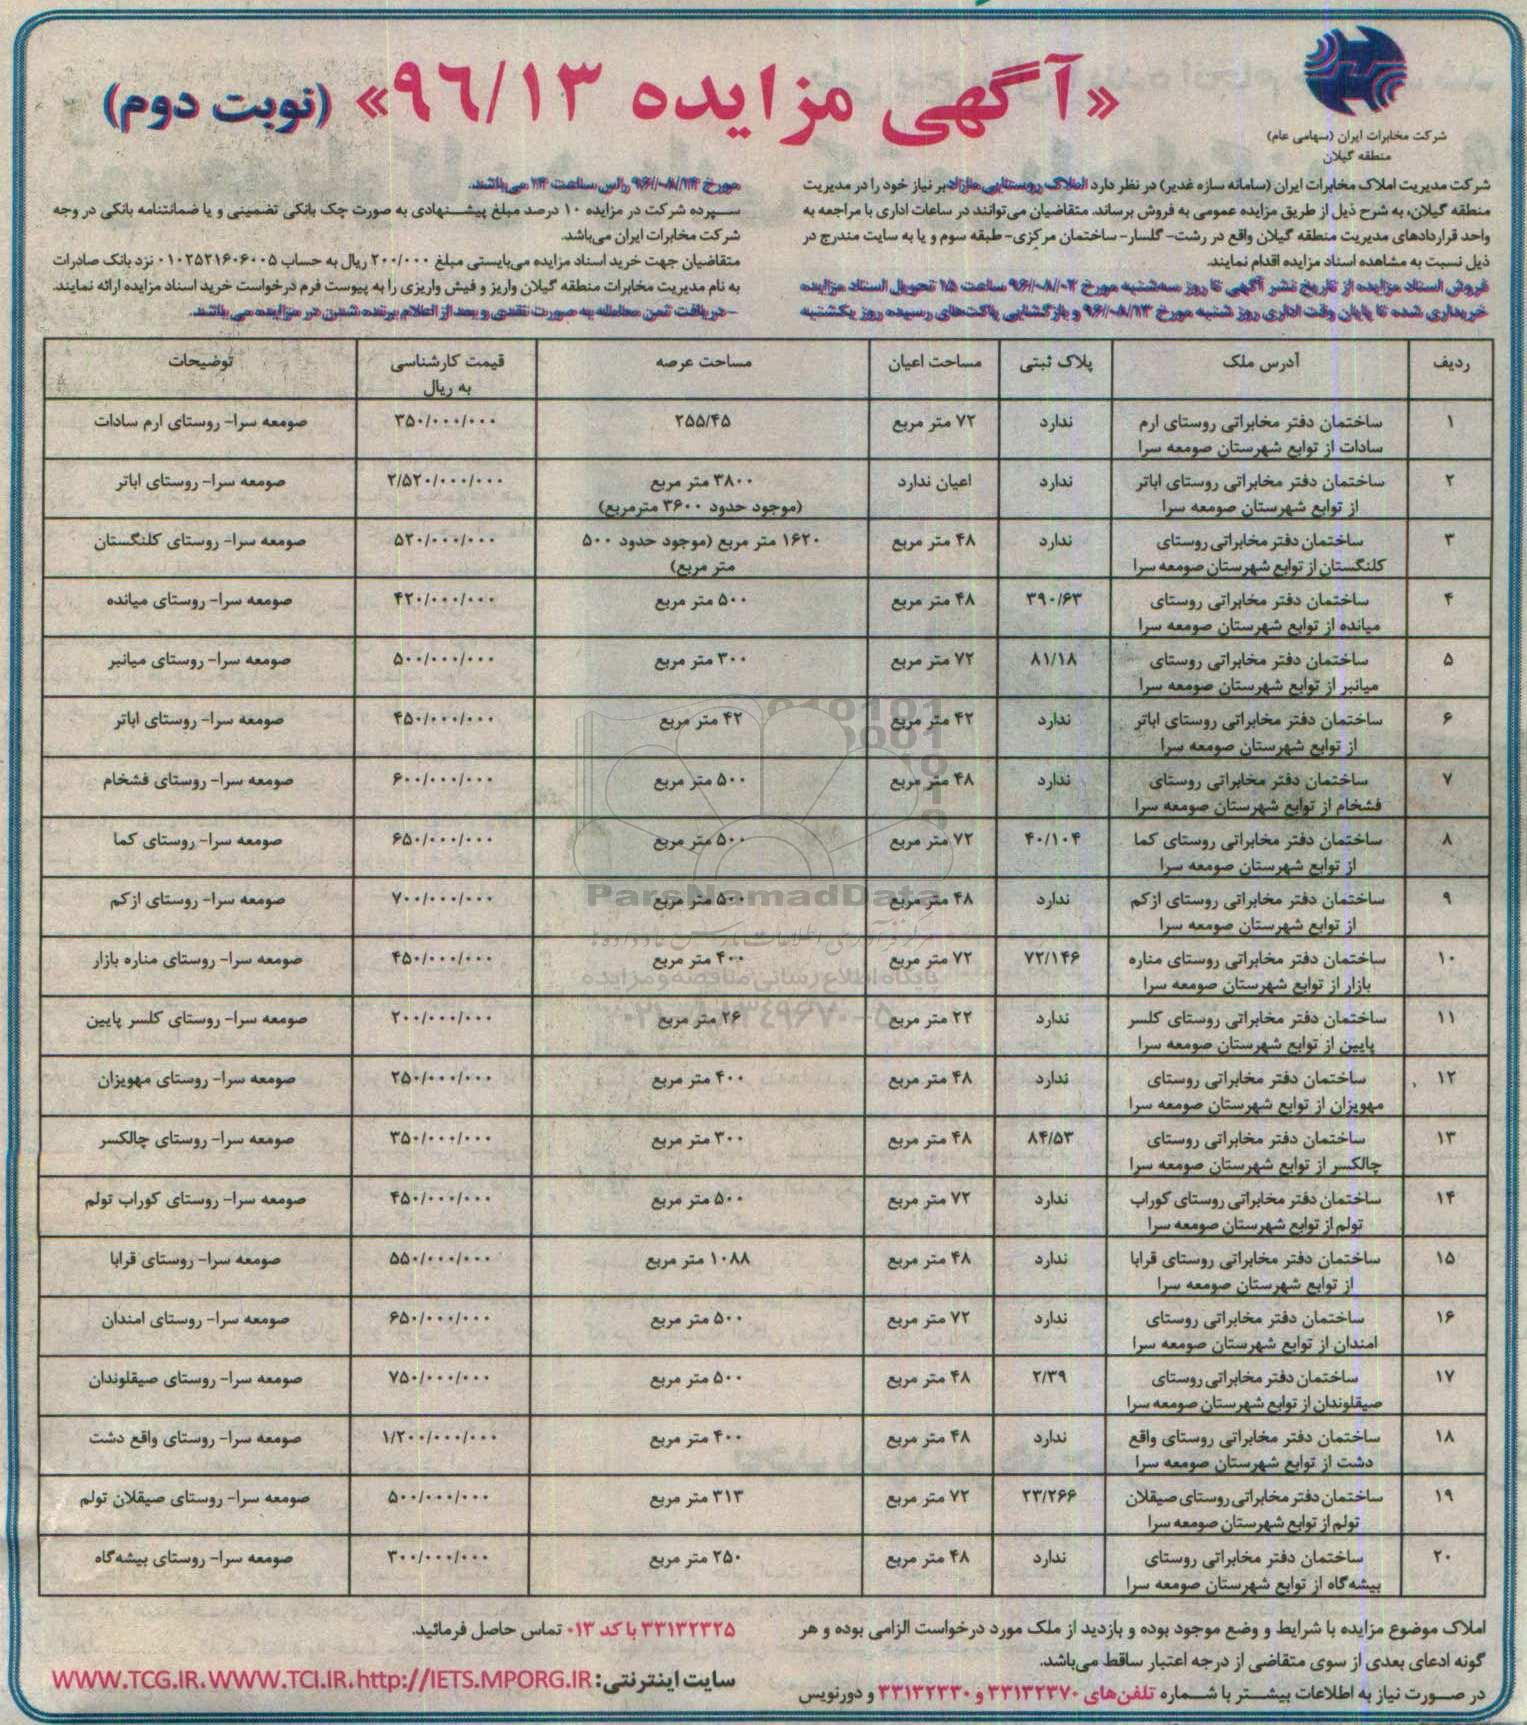 شرکت مخابرات ایران (سهامی عام)
منطقه گیلان
«آگهی مزایده ۹۶/۱۳» (نوبت دوم)
شرکت مدیریت املاک مخابرات ایران (سامانه سازه غدیر) در نظر دارد املاک روستایی مازاد بر نیاز خود را در مدیریت
منطقه گیلان، به شرح ذیل از طریق مزایده عمومی به فروش برساند. متقاضیان می‌توانند در ساعات اداری با مراجعه به
واحد قراردادهای مدیریت منطقه گیلان واقع در رشت- گلسار- ساختمان مرکزی- طبقه سوم و یا به سایت مندرج در
ذیل نسبت به مشاهده اسناد مزایده اقدام نمایند.
فروش اسناد مزایده از تاریخ نشر آگهی تا روز سه‌شنبه مورخ ۹۶/۰۸/۰۲ ساعت ۱۵ تحویل اسناد مزایده
خریداری شده تا پایان وقت اداری روز شنبه مورخ ۹۶/۰۸/۱۳ و بازگشایی پاکت‌های رسیده روز یکشنبه
مورخ ۹۶/۰۸/۱۴ راس ساعت ۱۴ می‌باشد.
سپرده شرکت در مزایده ۱۰ درصد مبلغ پیشنهادی به صورت چک بانکی تضمینی و یا ضمانتنامه بانکی در وجه
شرکت مخابرات ایران می‌باشد.
متقاضیان جهت خرید اسناد مزایده می‌بایستی مبلغ ۲۰۰/۰۰۰ ریال به حساب ۰۱۰۲۵۲۱۶۰۶۰۰۵ نزد بانک صادرات
به نام مدیریت مخابرات منطقه گیلان واریز و فیش واریزی را به پیوست فرم درخواست خرید اسناد مزایده ارائه نمایند.
- دریافت ثمن معامله به صورت نقدی و بعد از اعلام برنده شدن در مزایده می باشد.
ردیف آدرس ملک پلاک ثبتی مساحت اعیان مساحت عرصه قیمت کارشناسی توضیحات
به ریال
۱ ساختمان دفتر مخابراتی روستای ارم ندارد ۷۲ متر مربع ۲۵۵/۴۵ ۳۵۰/۰۰۰/۰۰۰ صومعه سرا- روستای ارم سادات
سادات از توابع شهرستان صومعه سرا
۲ ساختمان دفتر مخابراتی روستای اباتر ندارد اعیان ندارد ۳۸۰۰ متر مربع ۲/۵۲۰/۰۰۰/۰۰۰ صومعه سرا- روستای اباتر
از توابع شهرستان صومعه سرا (موجود حدود ۳۶۰۰ مترمربع)
۳ ساختمان دفتر مخابراتی روستای ندارد ۴۸ متر مربع ۱۶۲۰ متر مربع (موجود حدود ۵۰۰ ۵۲۰/۰۰۰/۰۰۰ صومعه سرا- روستای کلنگستان
کلنگستان از توابع شهرستان صومعه سرا متر مربع)
۴ ساختمان دفتر مخابراتی روستای ۳۹۰/۶۳ ۴۸ متر مربع ۵۰۰ متر مربع ۴۲۰/۰۰۰/۰۰۰ صومعه سرا- روستای میانده
میانده از توابع شهرستان صومعه سرا
۵ ساختمان دفتر مخابراتی روستای ۸۱/۱۸ ۷۲ متر مربع ۳۰۰ متر مربع ۵۰۰/۰۰۰/۰۰۰ صومعه سرا- روستای میانبر
میانبر از توابع شهرستان صومعه سرا
۶ ساختمان دفتر مخابراتی روستای اباتر ندارد ۴۲ متر مربع ۴۲ متر مربع ۴۵۰/۰۰۰/۰۰۰ صومعه سرا- روستای اباتر
از توابع شهرستان صومعه سرا
۷ ساختمان دفتر مخابراتی روستای ندارد ۴۸ متر مربع ۵۰۰ متر مربع ۶۰۰/۰۰۰/۰۰۰ صومعه سرا- روستای فشخام
فشخام از توابع شهرستان صومعه سرا
۸ ساختمان دفتر مخابراتی روستای کما ۴۰/۱۰۴ ۷۲ متر مربع ۵۰۰ متر مربع ۶۵۰/۰۰۰/۰۰۰ صومعه سرا- روستای کما
از توابع شهرستان صومعه سرا
۹ ساختمان دفتر مخابراتی روستای ازکم ندارد ۴۸ متر مربع ۵۰۰ متر مربع ۷۰۰/۰۰۰/۰۰۰ صومعه سرا- روستای ازکم
از توابع شهرستان صومعه سرا
۱۰ ساختمان دفتر مخابراتی روستای مناره ۷۲/۱۴۶ ۷۲ متر مربع ۴۰۰ متر مربع ۴۵۰/۰۰۰/۰۰۰ صومعه سرا- روستای مناره بازار
بازار از توابع شهرستان صومعه سرا
۱۱ ساختمان دفتر مخابراتی روستای کلسر ندارد ۲۲ متر مربع ۲۶ متر مربع ۲۰۰/۰۰۰/۰۰۰ صومعه سرا- روستای کلسر پایین
پایین از توابع شهرستان صومعه سرا
۱۲ ساختمان دفتر مخابراتی روستای ندارد ۴۸ متر مربع ۴۰۰ متر مربع ۲۵۰/۰۰۰/۰۰۰ صومعه سرا- روستای مهویزان
مهویزان از توابع شهرستان صومعه سرا
۱۳ ساختمان دفتر مخابراتی روستای ۸۴/۵۳ ۴۸ متر مربع ۳۰۰ متر مربع ۳۵۰/۰۰۰/۰۰۰ صومعه سرا- روستای چالکسر
چالکسر از توابع شهرستان صومعه سرا
۱۴ ساختمان دفتر مخابراتی روستای کوراب ندارد ۷۲ متر مربع ۵۰۰ متر مربع ۴۵۰/۰۰۰/۰۰۰ صومعه سرا- روستای کوراب تولم
تولم از توابع شهرستان صومعه سرا
۱۵ ساختمان دفتر مخابراتی روستای قرابا ندارد ۴۸ متر مربع ۱۰۸۸ متر مربع ۵۵۰/۰۰۰/۰۰۰ صومعه سرا- روستای قرابا
از توابع شهرستان صومعه سرا
۱۶ ساختمان دفتر مخابراتی روستای ندارد ۷۲ متر مربع ۵۰۰ متر مربع ۶۵۰/۰۰۰/۰۰۰ صومعه سرا- روستای امندان
امندان از توابع شهرستان صومعه سرا
۱۷ ساختمان دفتر مخابراتی روستای ۲/۳۹ ۴۸ متر مربع ۵۰۰ متر مربع ۷۵۰/۰۰۰/۰۰۰ صومعه سرا- روستای صیقلوندان
صیقلوندان از توابع شهرستان صومعه سرا
۱۸ ساختمان دفتر مخابراتی روستای واقع ندارد ۴۸ متر مربع ۴۰۰ متر مربع ۱/۲۰۰/۰۰۰/۰۰۰ صومعه سرا- روستای واقع دشت
دشت از توابع شهرستان صومعه سرا
۱۹ ساختمان دفتر مخابراتی روستای صیقلان ۲۳/۲۶۶ ۷۲ متر مربع ۳۱۳ متر مربع ۵۰۰/۰۰۰/۰۰۰ صومعه سرا- روستای صیقلان تولم
تولم از توابع شهرستان صومعه سرا
۲۰ ساختمان دفتر مخابراتی روستای ندارد ۴۸ متر مربع ۲۵۰ متر مربع ۳۰۰/۰۰۰/۰۰۰ صومعه سرا- روستای بیشه‌گاه
بیشه‌گاه از توابع شهرستان صومعه سرا
ParsNamadData
پایگاه اطلاع رسانی مناقصه و مزایده
املاک موضوع مزایده با شرایط و وضع موجود بوده و بازدید از ملک مورد درخواست الزامی بوده و هر
گونه ادعای بعدی از سوی متقاضی از درجه اعتبار ساقط می‌باشد.
در صورت نیاز به اطلاعات بیشتر با شماره تلفن‌های ۳۳۱۳۲۳۷۰ و ۳۳۱۳۲۳۳۰ و دورنویس
۳۳۱۳۲۳۲۵ با کد ۰۱۳ تماس حاصل فرمائید.
سایت اینترنتی: WWW.TCG.IR.WWW.TCI.IR.http://IETS.MPORG.IR